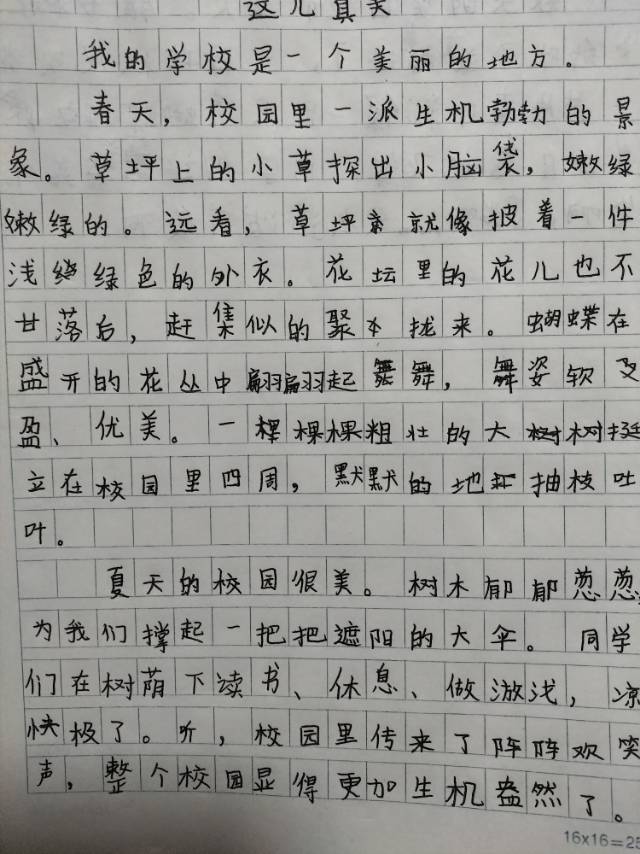 这儿真美
我的学校是一个美丽的地方。
春天，校园里一派生机勃勃的景
象。草坪上的小草探出小脑袋，嫩绿
嫩绿的。远看，草坪就像披着一件
浅绿色的外衣。花坛里的花儿也不
甘落后，赶集似的聚拢来。蝴蝶在
盛开的花丛中翩翩起舞，舞姿软
盈、优美。一棵棵粗壮的大树挺
立在校园里四周，默默的地抽枝吐
叶。
夏天的校园很美。树木郁郁葱葱，
为我们撑起一把把遮阳的大伞。同学
们在树荫下读书、休息、做游戏，凉
快极了。听，校园里传来了阵阵欢笑
声，整个校园显得更加生机盎然了。
16x16=25